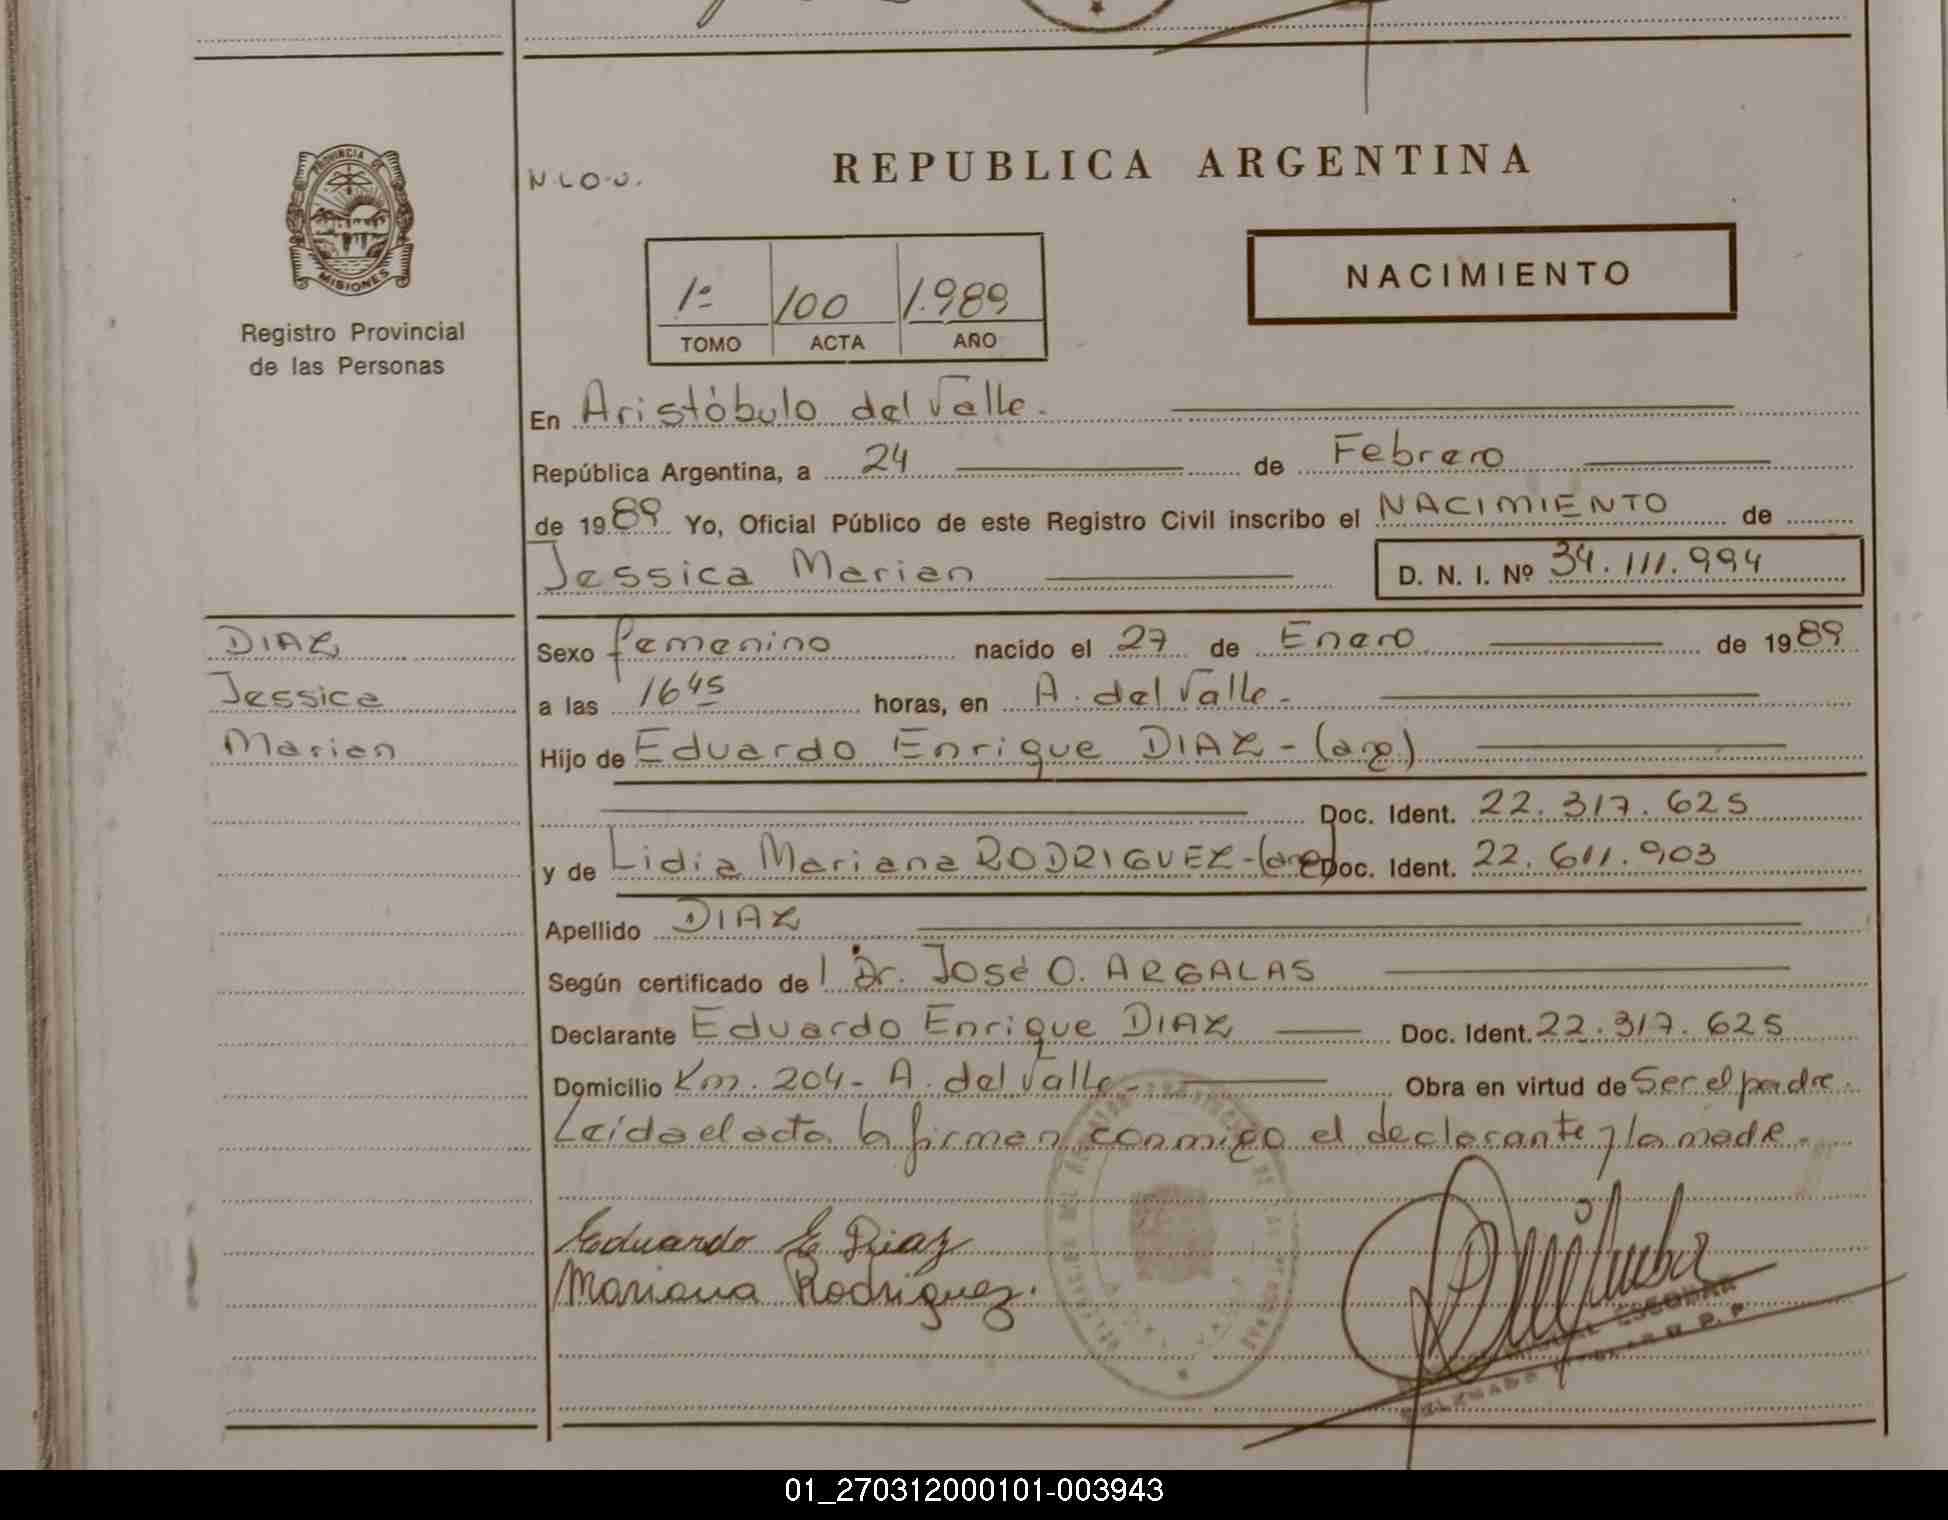 PROVINCIA DE
MISIONES
Registro Provincial
de las Personas
N L O U.
REPUBLICA ARGENTINA
1º 100 1.989
TOMO ACTA AÑO
NACIMIENTO
En Aristóbulo del Valle.
República Argentina, a 24 de Febrero
de 1989 Yo, Oficial Público de este Registro Civil inscribo el NACIMIENTO de
Jessica Marian D. N. I. Nº 34.111.994
DIAZ
Jessica
Marian
Sexo femenino nacido el 27 de Enero de 1989
a las 16 45 horas, en A. del Valle.-
Hijo de Eduardo Enrique DIAZ - (arg.)
Doc. Ident. 22.317.625
y de Lidia Mariana RODRIGUEZ - (arg) Doc. Ident. 22.611.903
Apellido DIAZ
Según certificado de l Dr. José O. ARGALAS
Declarante Eduardo Enrique DIAZ Doc. Ident. 22.317.625
Domicilio Km. 204 - A. del Valle.- Obra en virtud de Ser el padre.
Leída el acta la firman conmigo el declarante y la madre.
Eduardo E Diaz
Mariana Rodriguez.
ESCOBAR
01_270312000101-003943